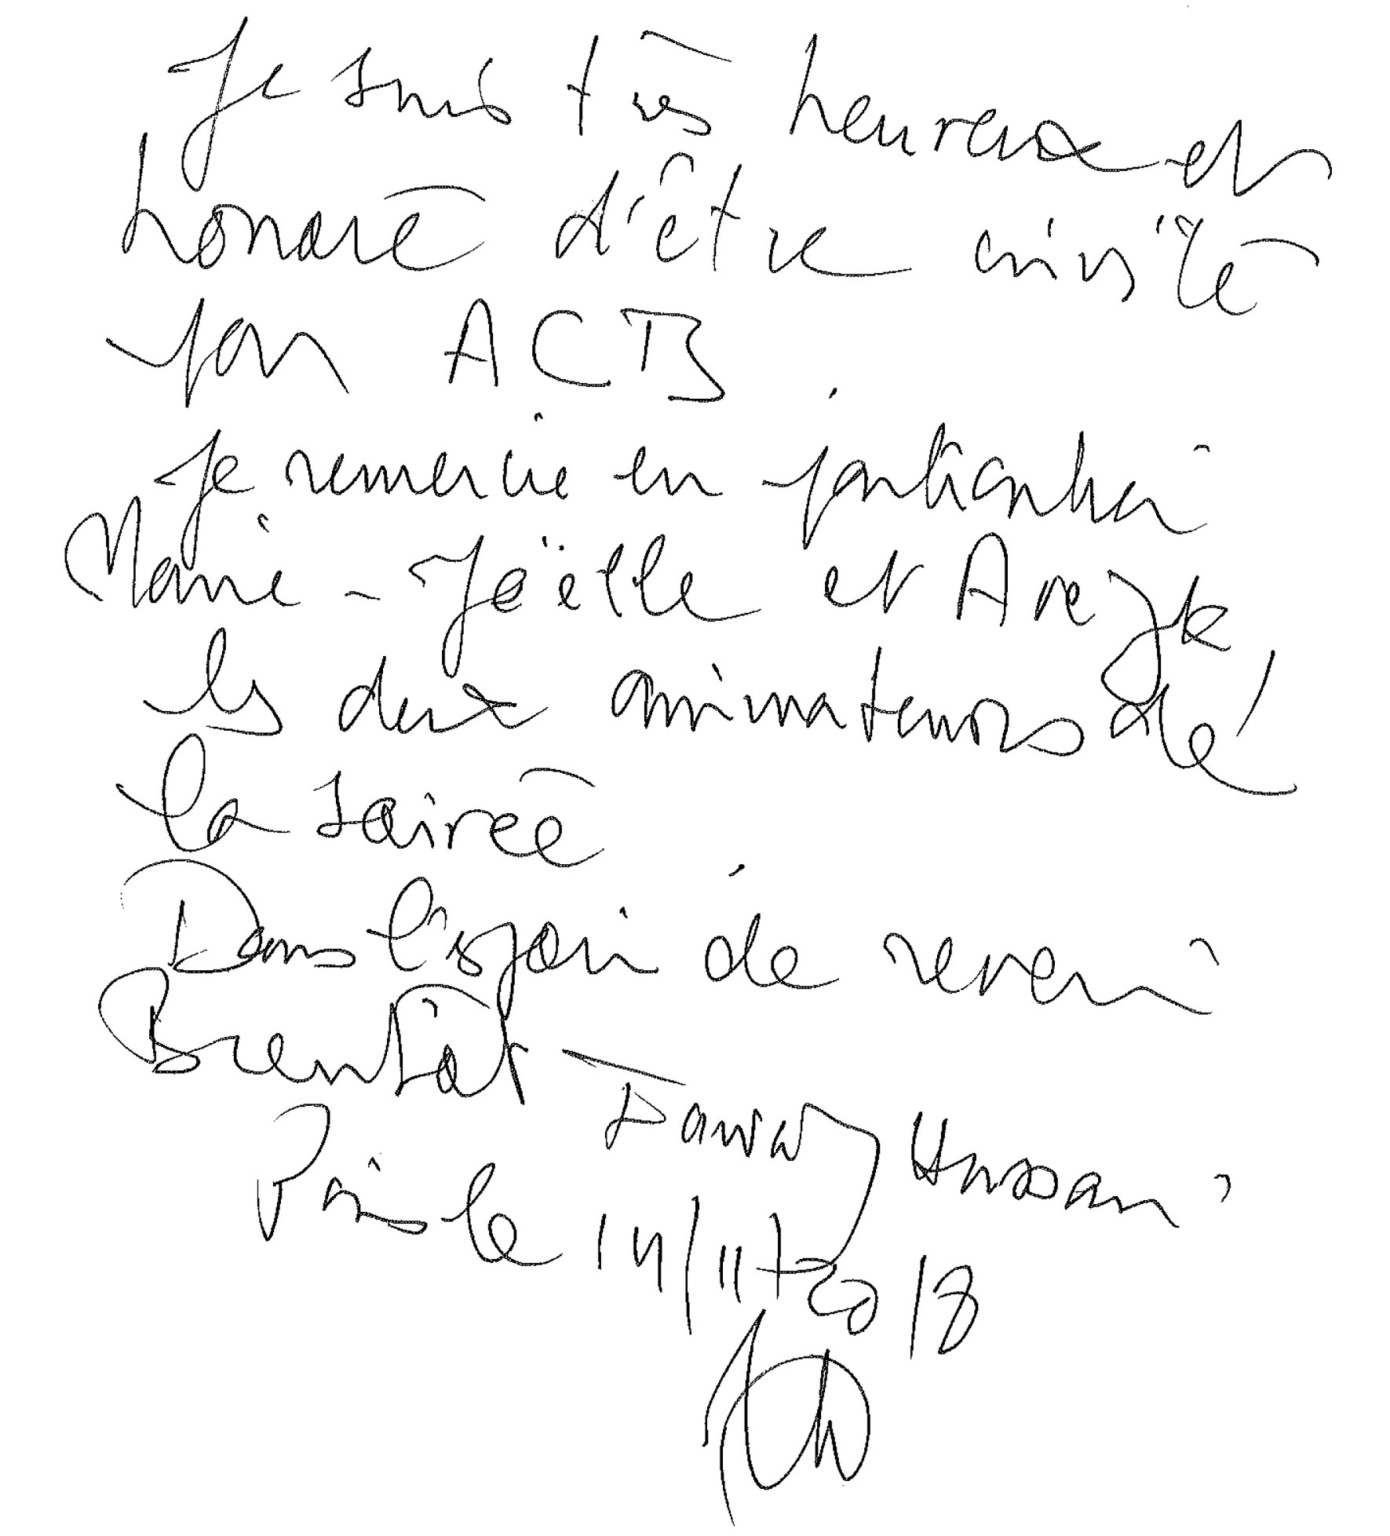 Je suis très heureux et
honoré d'être invité
par ACTB.
Je remercie en particulier
Marie-Joëlle et Arezk
les deux animateurs de
la soirée.
Dans l'espoir de revenir
Bientôt Fawaz Hussain
Paris le 14/11/2018